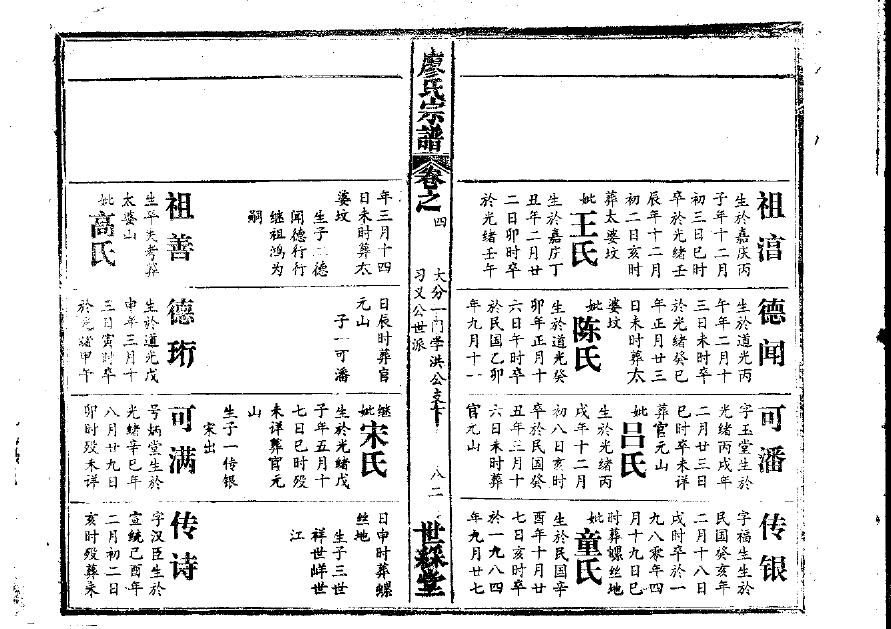 廖氏宗譜
卷之四
大分一门学洪公支下
习义公世派
八二
世綵堂
祖
生於嘉庆丙
子年十二月
初三日巳时
卒於光绪壬
辰年十二月
初二日亥时
葬太婆坟
妣王氏
生於嘉庆丁
丑年二月廿
二日卯时卒
於光绪壬午
年三月十四
日未时葬太
婆坟
生子二德
闻德行行
继祖鸿为
嗣
祖善
生平失考葬
太婆山
妣高氏
德闻
生於道光丙
午年二月十
三日未时卒
於光绪癸巳
年正月廿三
日未时葬太
婆坟
妣陈氏
生於道光癸
卯年正月十
六日午时卒
於民国乙卯
年九月十一
日辰时葬官
元山
子一可潘
德珩
生於道光戊
申年三月十
三日寅时卒
於光绪甲午
可潘
字玉堂生於
光绪丙戌年
二月廿三日
巳时卒未详
葬官元山
妣吕氏
生於光绪丙
戌年十二月
初八日亥时
卒於民国癸
丑年三月十
六日未时葬
官元山
继妣宋氏
生於光绪戊
子年五月十
七日巳时殁
未详葬官元
山
生子一传银
宋出
可满
号炳堂生於
光绪辛巳年
八月廿九日
卯时殁未详
传银
字福生生於
民国癸亥年
二月十八日
戌时卒於一
九八零年四
月十九日巳
时葬螺丝地
妣童氏
生於民国辛
酉年十月廿
七日亥时卒
於一九八四
年九月廿七
日申时葬螺
丝地
生子三世
祥世峰世
江
传诗
字汉臣生於
宣统己酉年
二月初二日
亥时殁葬未